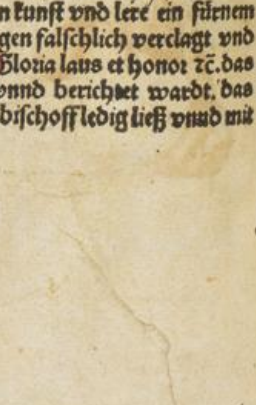 n kunst vnd lere ein fürnem
gen falschlich verclagt vnd
Gloria laus et honor ⁊c̄. das
vnnd berichtet wardt. das
bischoff ledig ließ vnnd mit